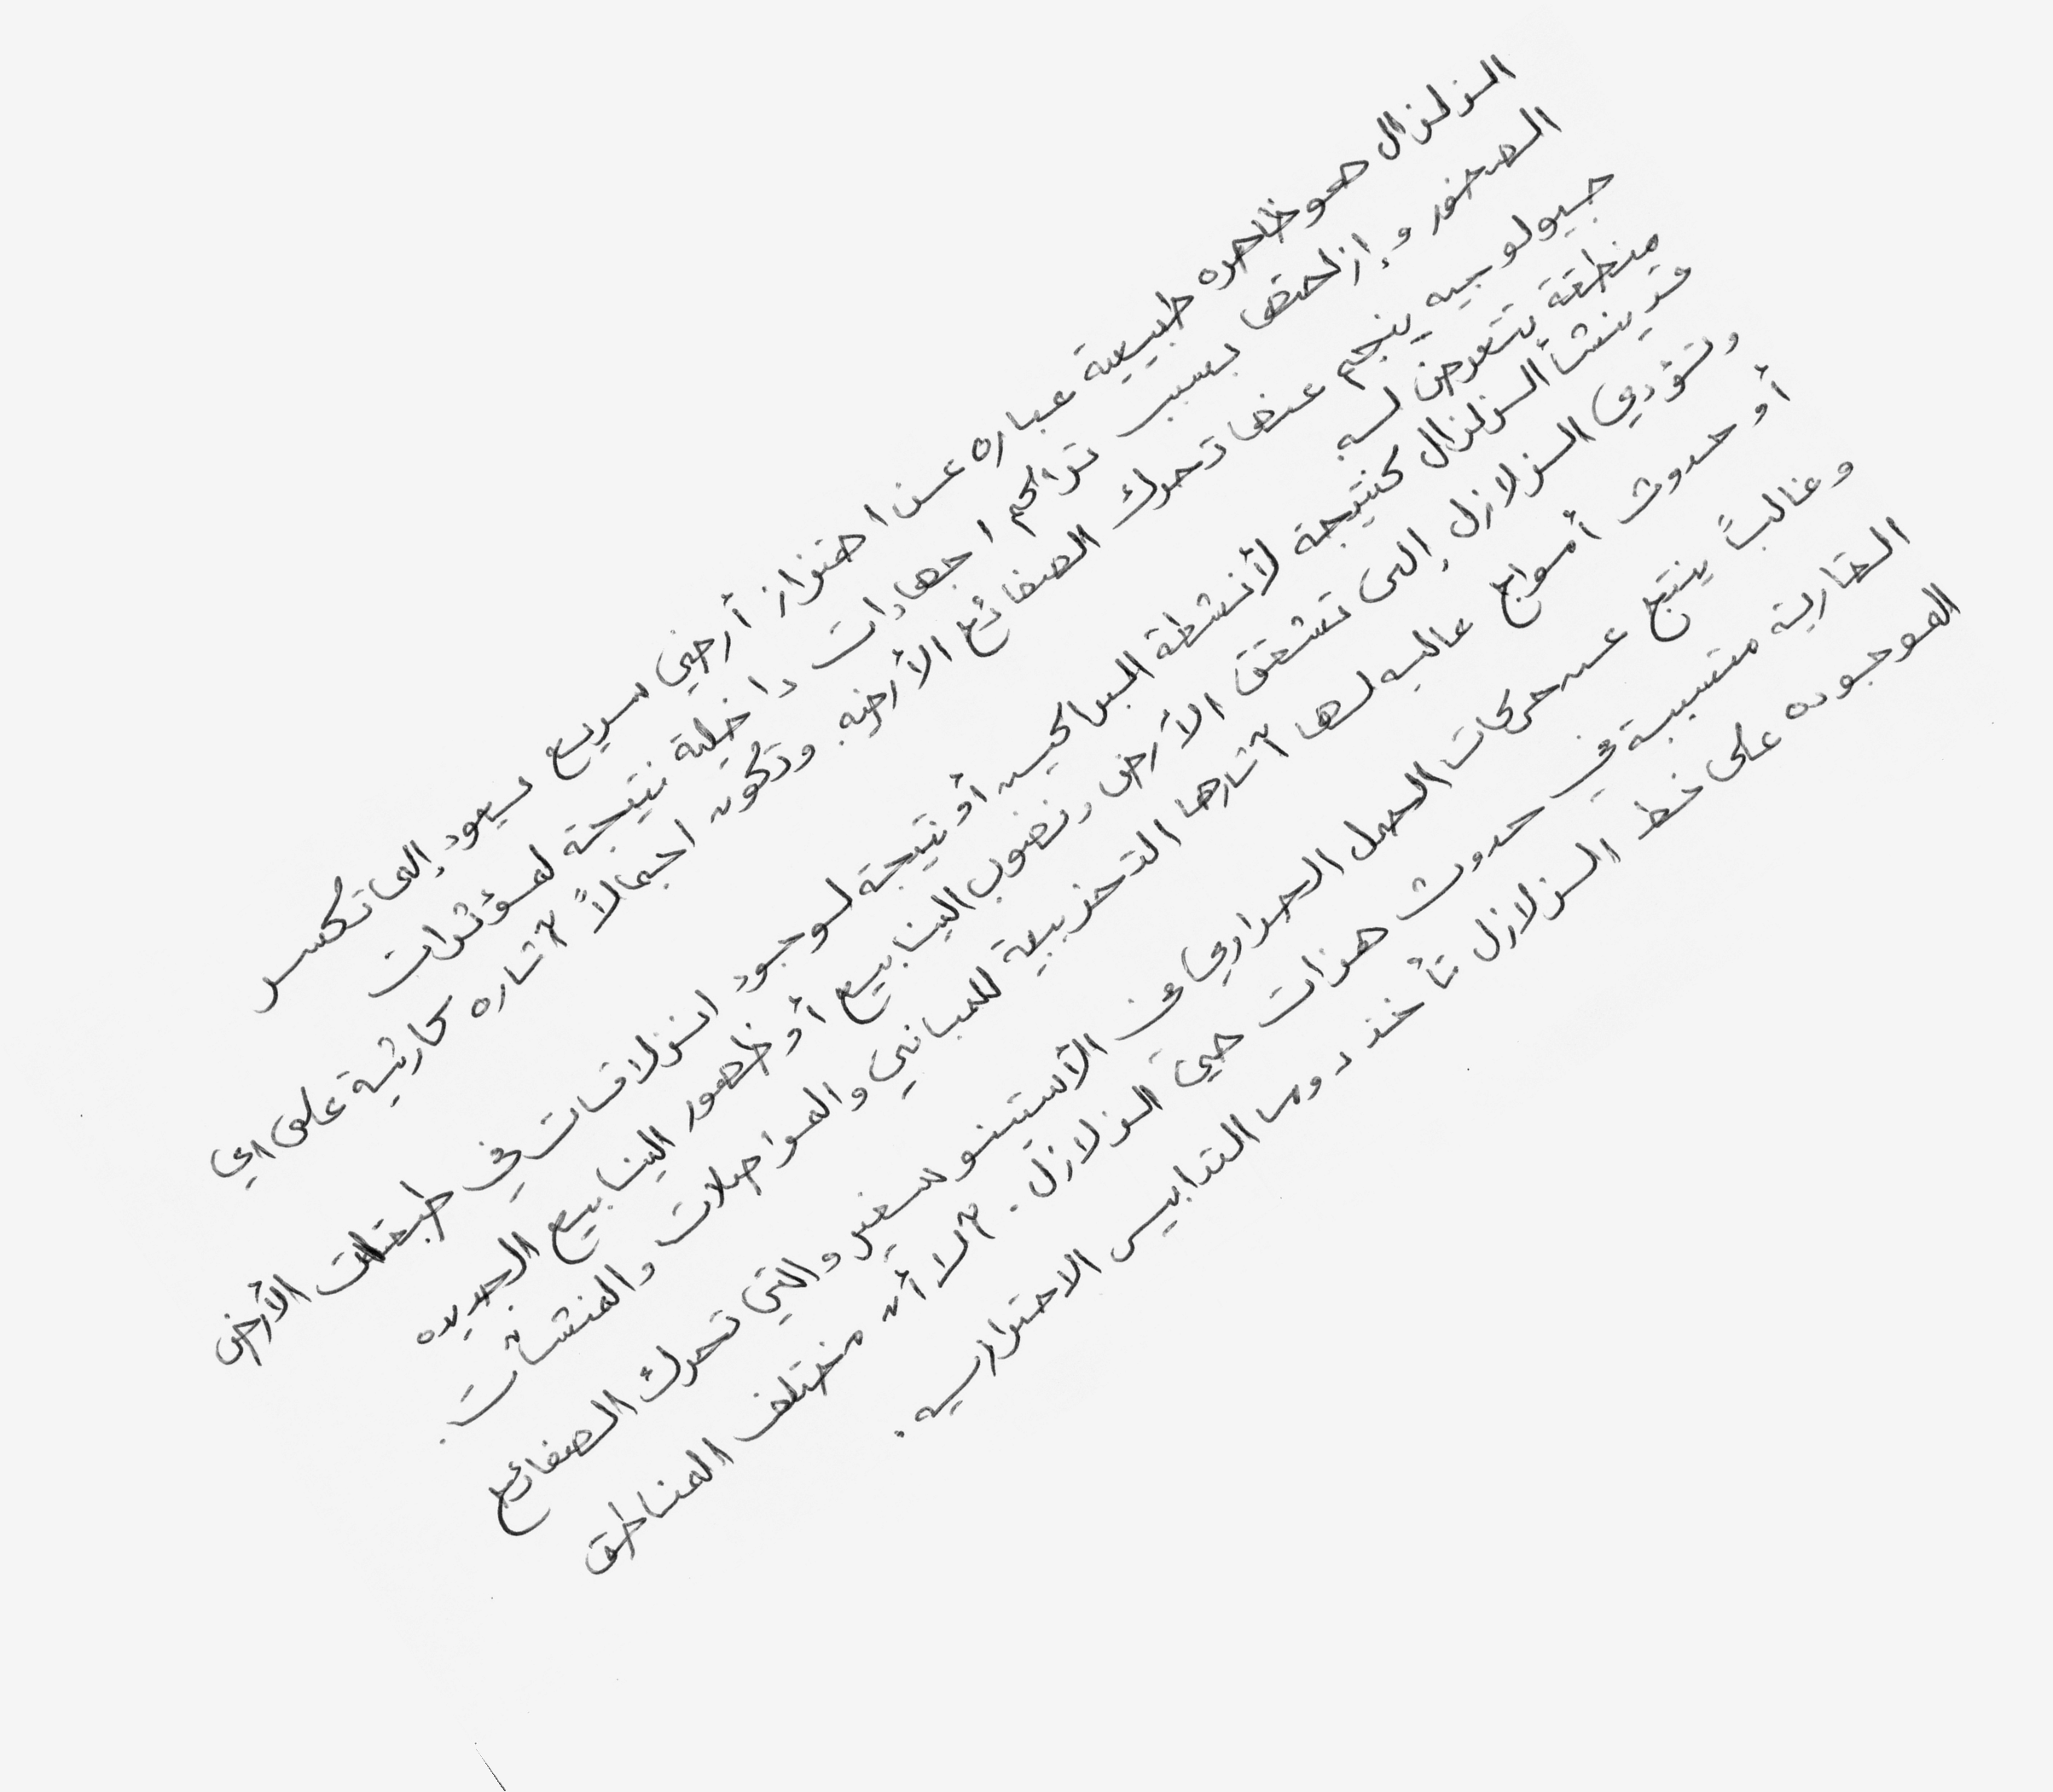 الزلزال هو ظاهره طبيعية عباره عن اهتزاز أرضي سريع يعود إلى تكسر
الصخور وإزاحتها بسبب تراكم اجهادات داخلية نتيجة لمؤثرات
جيولوجيه ينجم عنها تحرك الصفائح الأرضيه. وتكون اجمالاً آثاره كارثية على اي
منطقة يتعرض له
قد ينشأ الزلزال كنتيجة لأنشطة البراكين أو نتيجة لوجود انزلاقات في طبقات الأرض
وتؤدي الزلازل إلى تشقق الأرض ونضوب الينابيع أو ظهور الينابيع الجديده
أو حدوث أمواج عاليه لها آثارها التخريبية للمباني والمواصلات والمنشآت.
وغالباً ينتج عن حركات الحمل الحراري في الأستنوسفير والتي تحرك الصفائح
القارية متسببة في حدوث هزات هي الزلازل. آلا أن مختلف المناطق
الموجوده على خط الزلازل تأخذ دوما التدابير الاحترازيه.